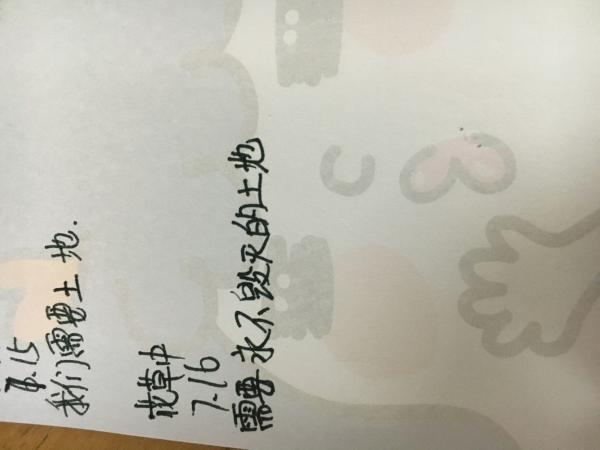 7.15
我们需要土地.
花草中
7.16
需要永不毁灭的土地